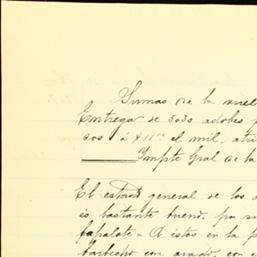 Sumas de la vuel
Entrega de 5050 adobes p
cos á $11.00 el mil, atri
Impte Gral de la
El estado general de los a
es bastante bueno, pu su
papalote - A estos en la p
barbecho con arado, con e